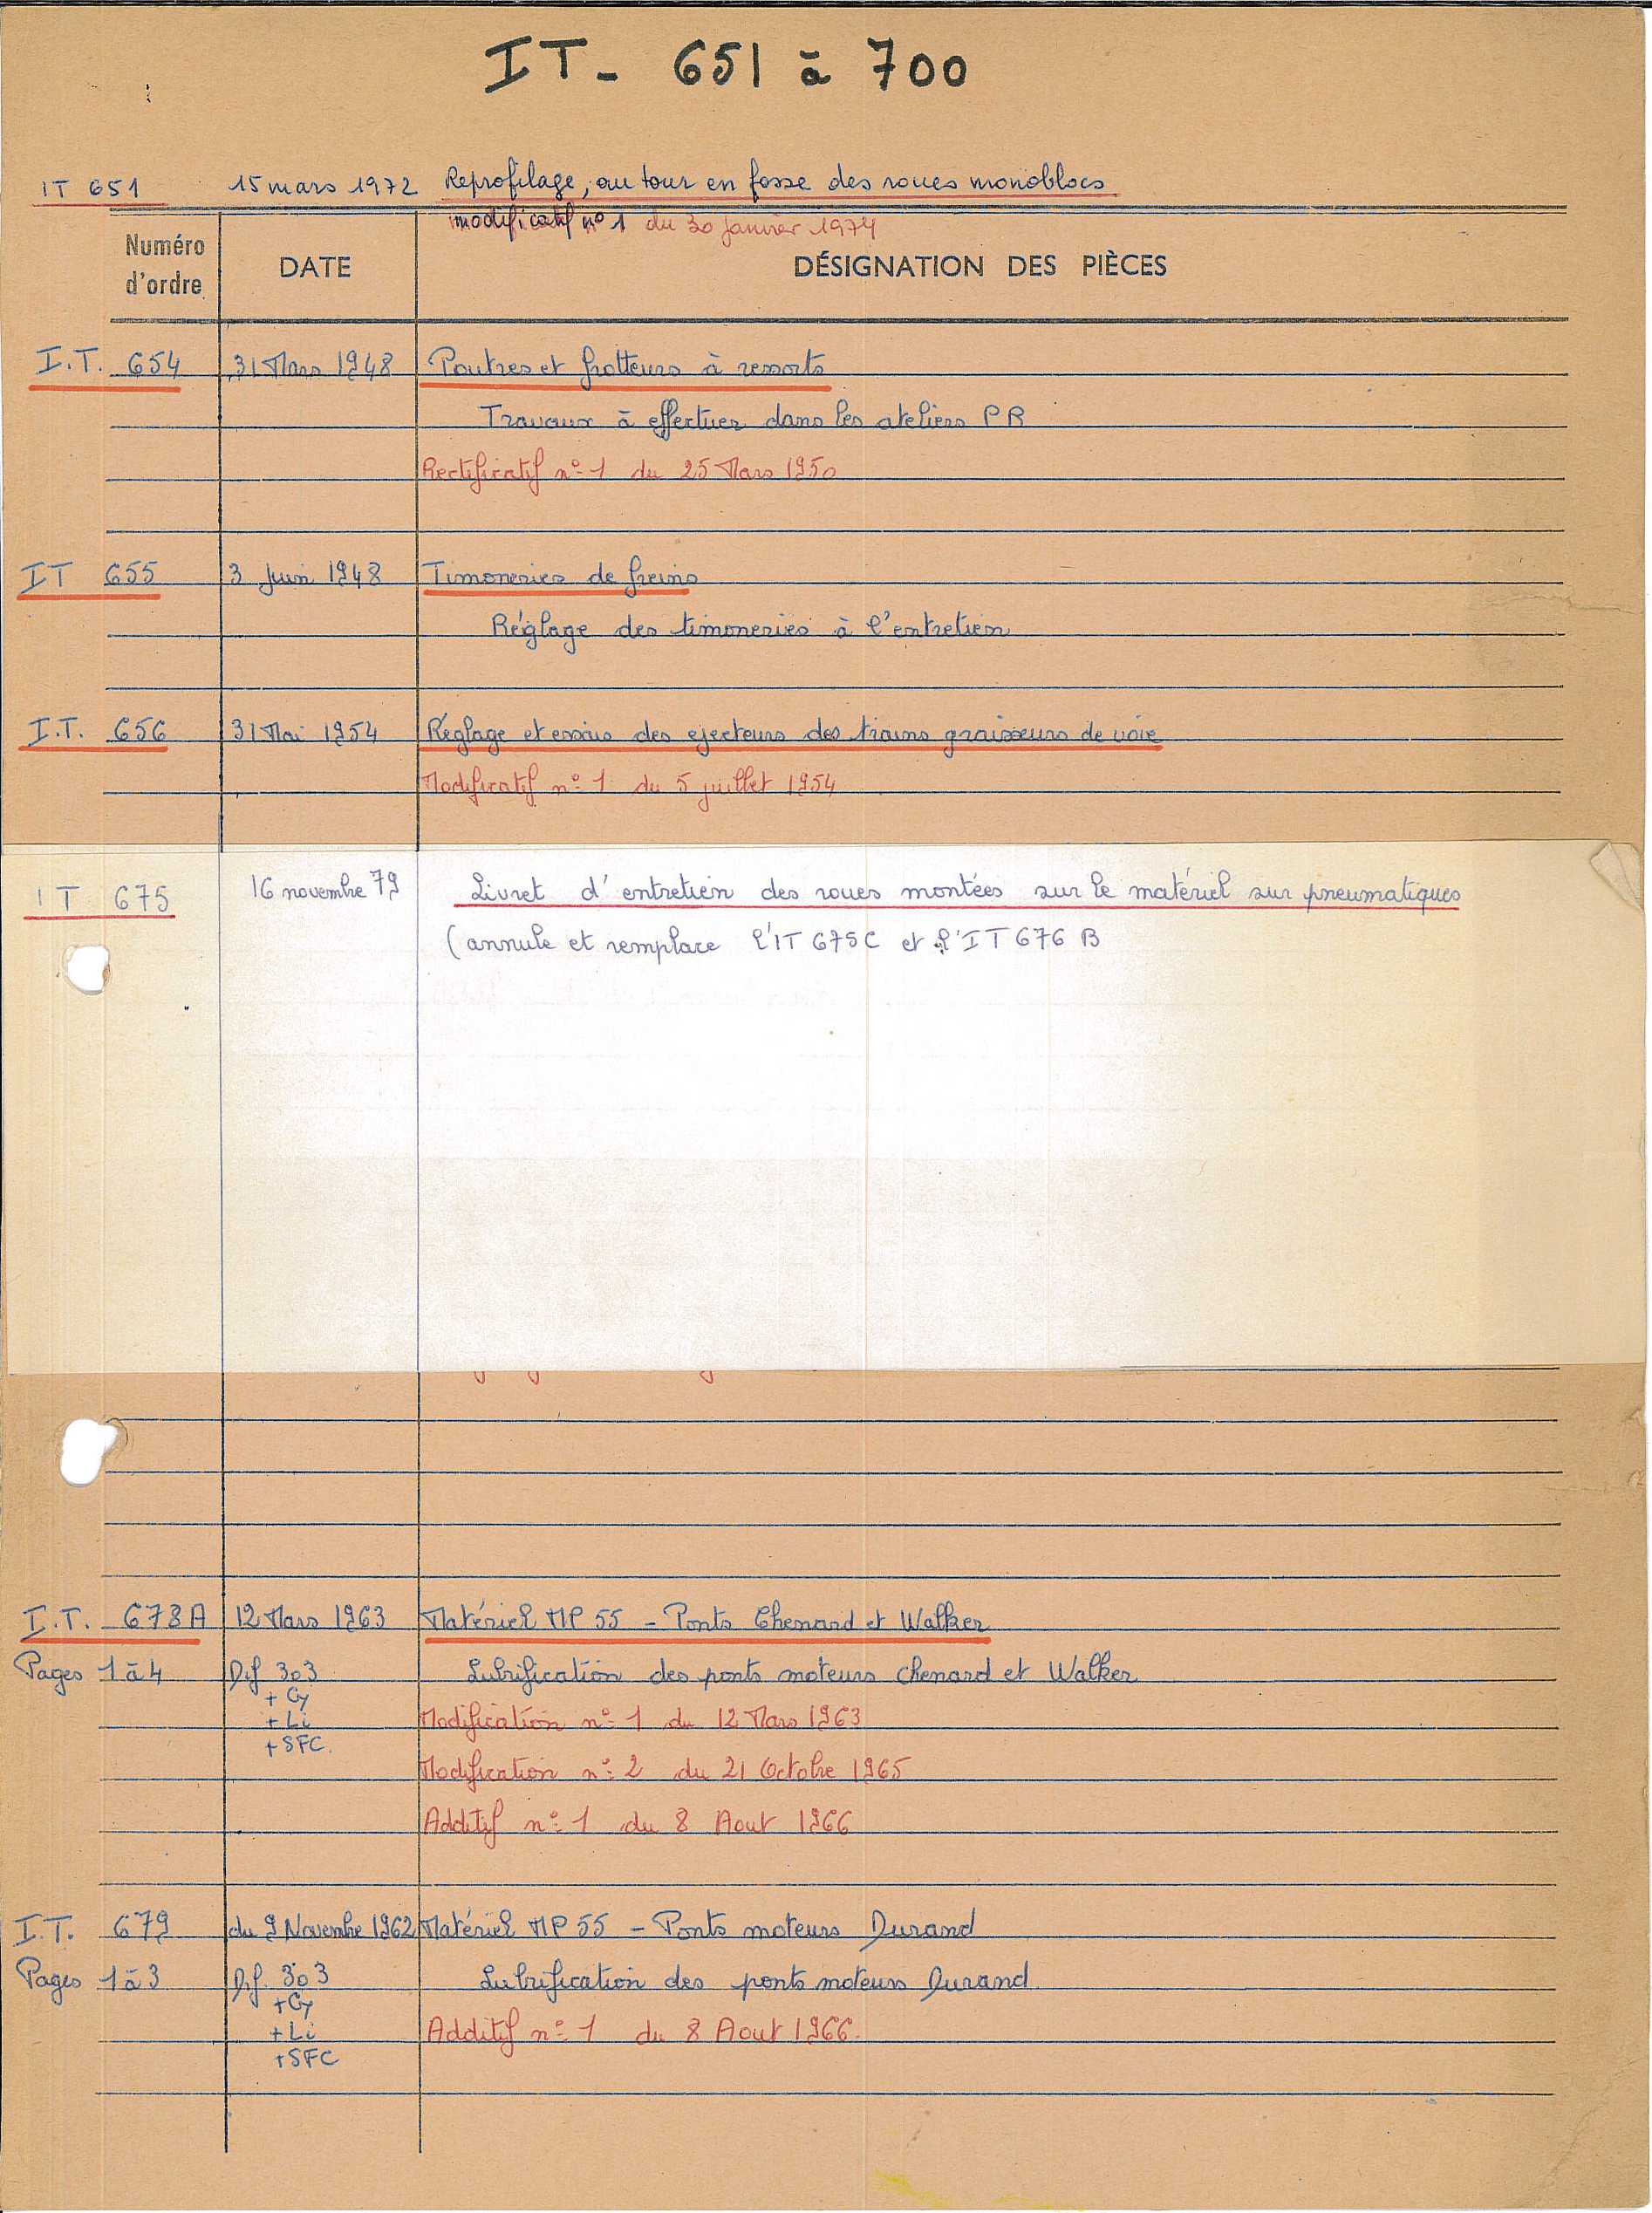 IT - 651 à 700
IT 651 15 mars 1972 Reprofilage, au tour en fosse des roues monoblocs
modificatif n° 1 du 30 janvier 1974
Numéro d'ordre DATE DÉSIGNATION DES PIÈCES
I.T. 654 31 Mars 1948 Poutres et frotteurs à ressorts
Travaux à effectuer dans les ateliers PR
Rectificatif n° 1 du 25 Mars 1950
IT 655 3 Juin 1948 Timoneries de freins
Réglage des timoneries à l'entretien
I.T. 656 31 Mai 1954 Réglage et essais des ejecteurs des trains graisseurs de voie
Modificatif n° 1 du 5 juillet 1954
IT 675 16 novembre 79 Livret d'entretien des roues montées sur le matériel sur pneumatiques
(annule et remplace l'IT 675C et l'IT 676 B
I.T. 678A 12 Mars 1963 Matériel MP 55 - Ponts Chenard et Walker
Pages 1 à 4 Dif 303 Lubrification des ponts moteurs Chenard et Walker
+ Cy
+ Li Modification n° 1 du 12 Mars 1963
+ SFC.
Modification n° 2 du 21 Octobre 1965
Additif n° 1 du 8 Aout 1966
I.T. 679 du 9 Novembre 1962 Matériel MP 55 - Ponts moteurs Durand
Pages 1 à 3 Dif. 303 Lubrification des ponts moteurs Durand
+ Cy
+ Li Additif n° 1 du 8 Aout 1966.
+ SFC